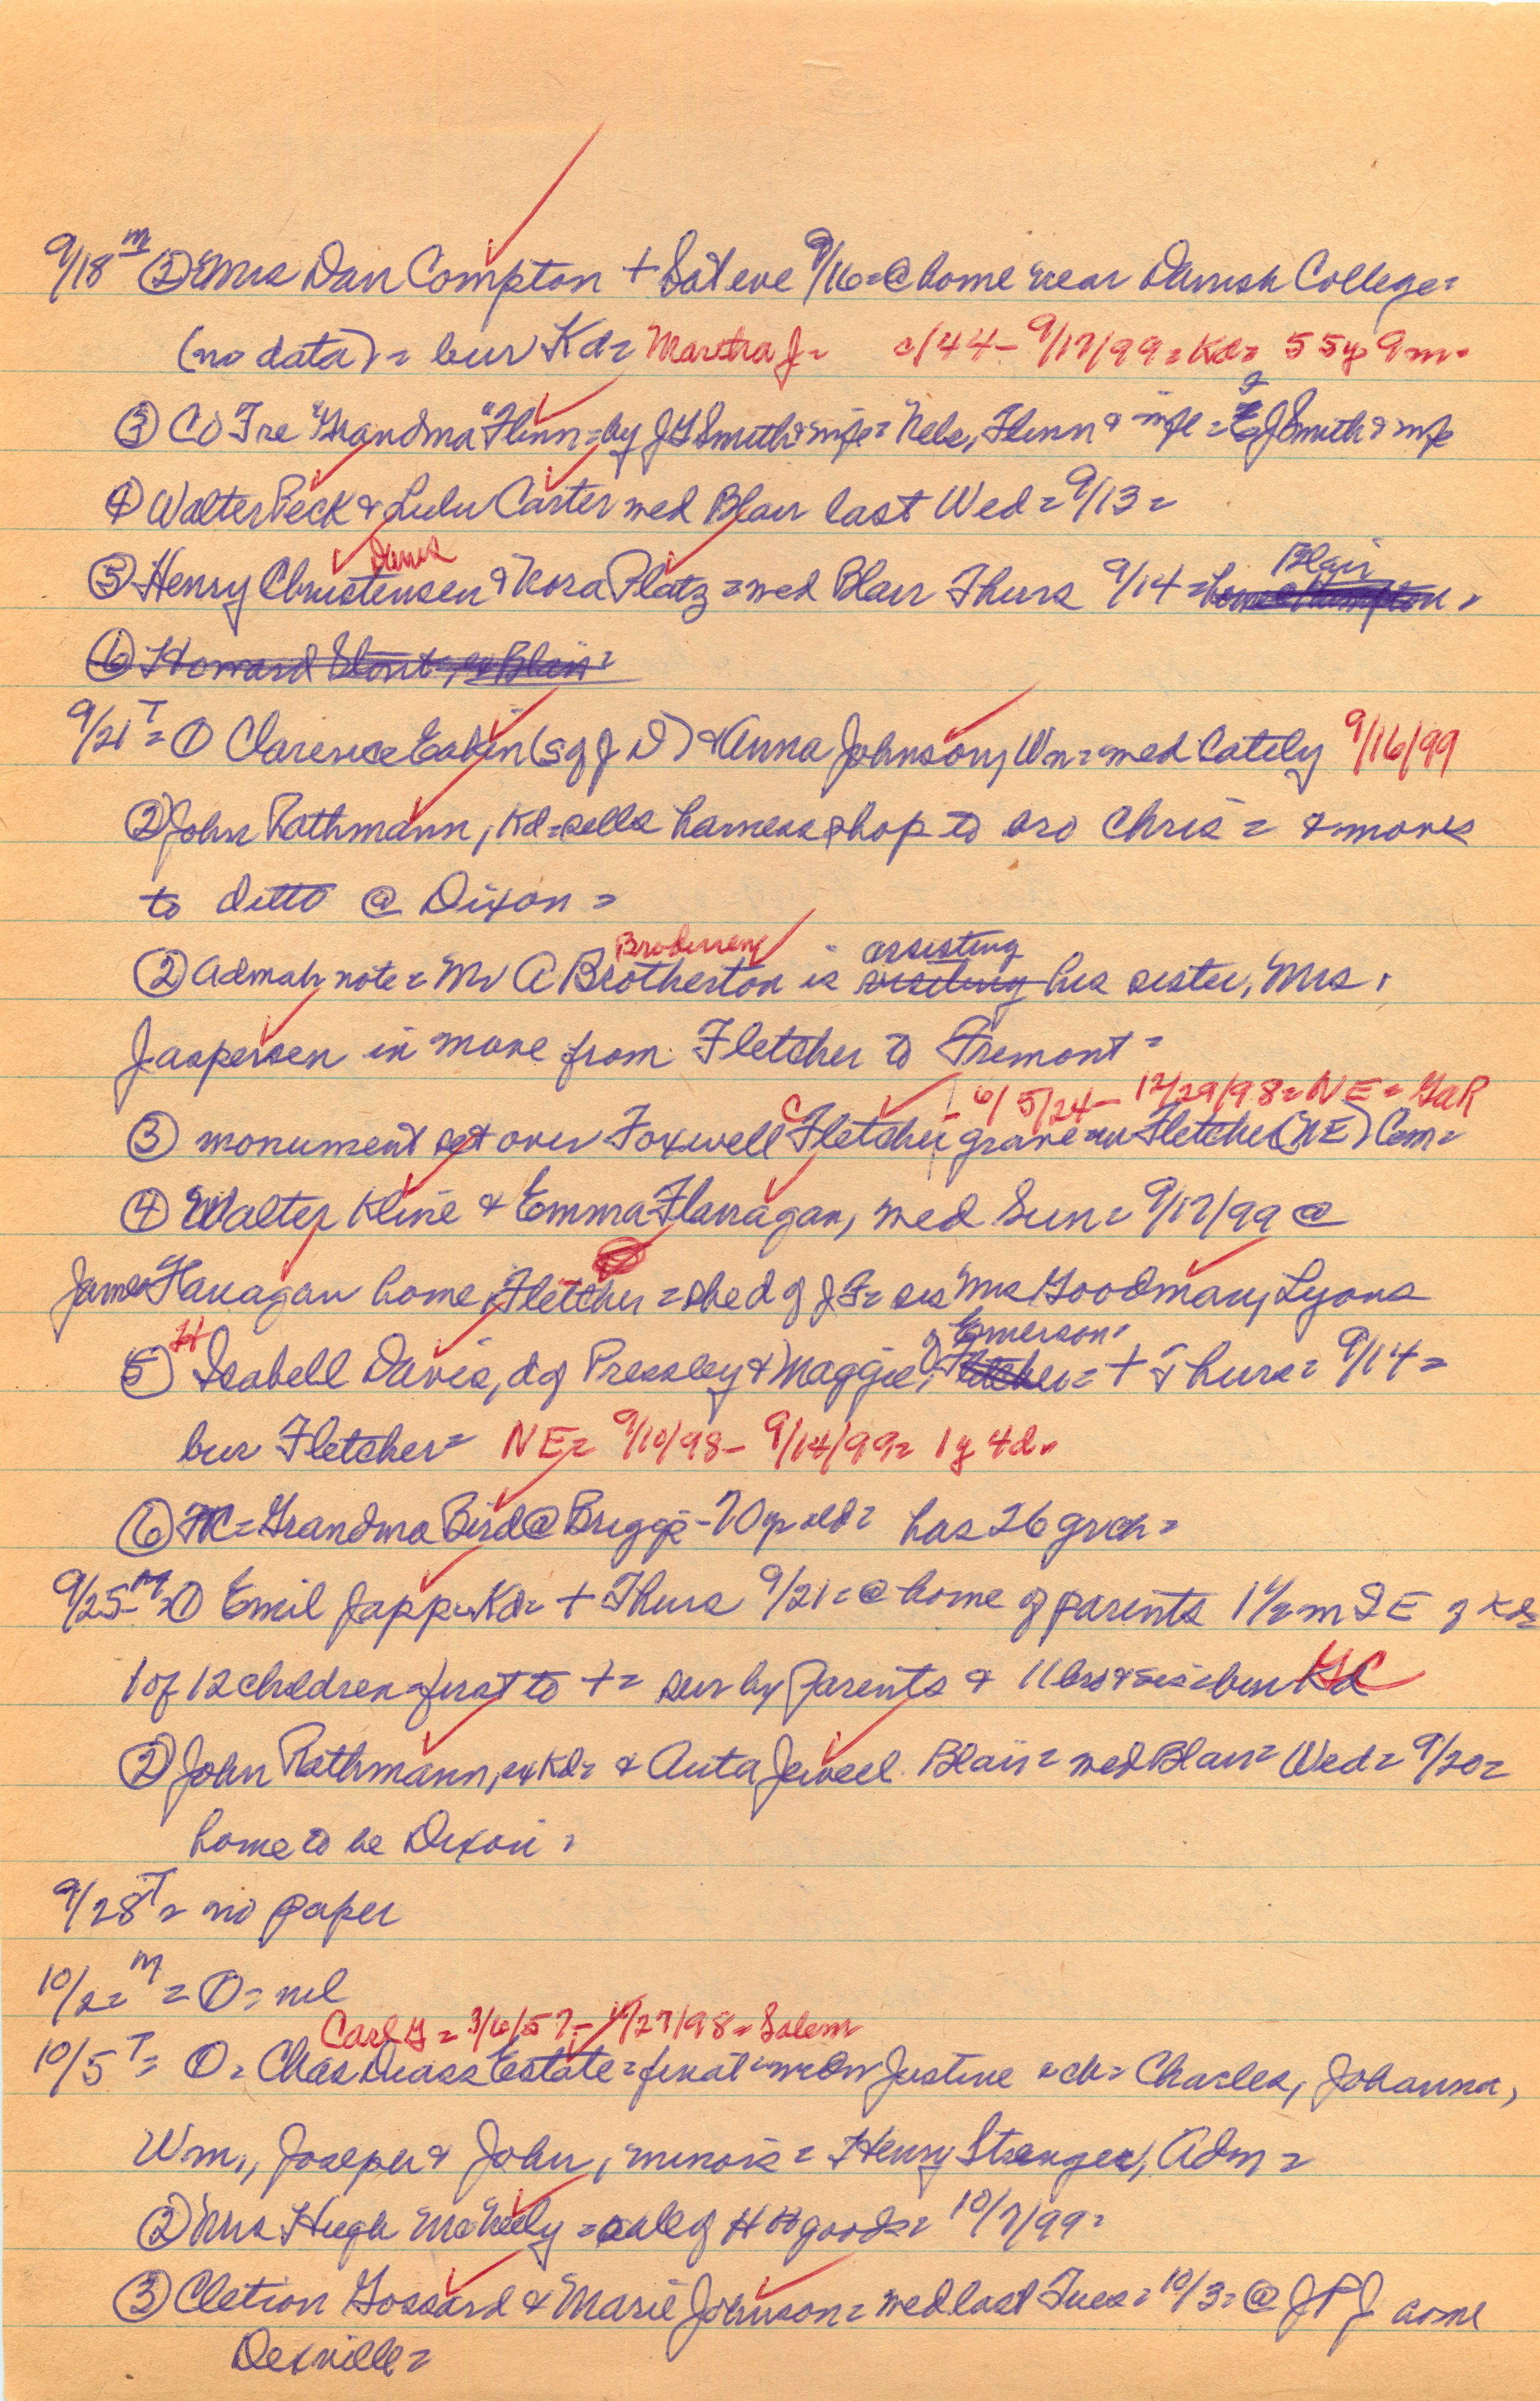 9/18 M ② Mrs Dan Compton + Sat eve 9/16 = @ home near Danish College =
(no data) = bur Kd = Martha J = c/44 - 9/17/99 = Kd = 55y 9m =
③ Co Tre "Grandma" Flinn = by J G Smith & wife = Nels, Flinn & wife = J Smith & wife
④ Walter Peck & Lulu Carter wed Blair last Wed = 9/13 =
Blair
⑤ Henry Christensen & Nora Platz = wed Blair Thurs 9/14 =
⑥ Howard Stout, ex Blair =
9/21 T = ① Clarence Eakin (s of J D) & Anna Johnson, Wn = wed lately 9/16/99
② John Rathmann, Kd = sells harness shop to bro Chris = & moves
to ditto @ Dixon =
assisting
② Admah note = Mr A Brotherton is visiting his sister, Mrs.
Jaspersen in move from Fletcher to Fremont =
- 6/5/24 - 12/29/98 = NE = GAR
③ monument set over Foxwell C Fletcher grave = Fletcher (NE) Cem =
④ Walter Kline & Emma Flanagan, wed Sun = 9/17/99 @
James Flanagan home, Fletcher = she d of J F = sis Mrs Goodman, Lyons
Emerson
⑤ H Isabell Davis, d of Pressley & Maggie, Fletcher = + Thurs = 9/14 =
bur Fletcher = NE = 9/10/98 - 9/14/99 = 1y 4d =
⑥ = Grandma Bird @ Briggs - 70 yr old = has 26 grch =
9/25 M = ① Emil Japp = Kd = + Thurs 9/21 = @ home of parents 1 1/2 m SE of Kd =
1 of 12 children = first to + = sur by parents & 11 bro & sis = bur Kd GC
② John Rathmann, ex Kd = & Auta Jewell Blair = wed Blair = Wed = 9/20 =
home to be Dixon =
9/28 T = no paper
10/2 = M = ① = nil
Carl G = 3/6/57 - /27/98 = Salem
10/5 T = ① = Chas Estate = final = Justine & ch = Charles, Johanna,
Wm., Joseph & John, minors = Henry Stranger, Adm =
② Mrs Hugh McNeely = sale of H H goods = 10/7/99 =
③ Cletion Gossard & Marie Johnson = wed last Tues = 10/3 = @ J P J home
Dexville =